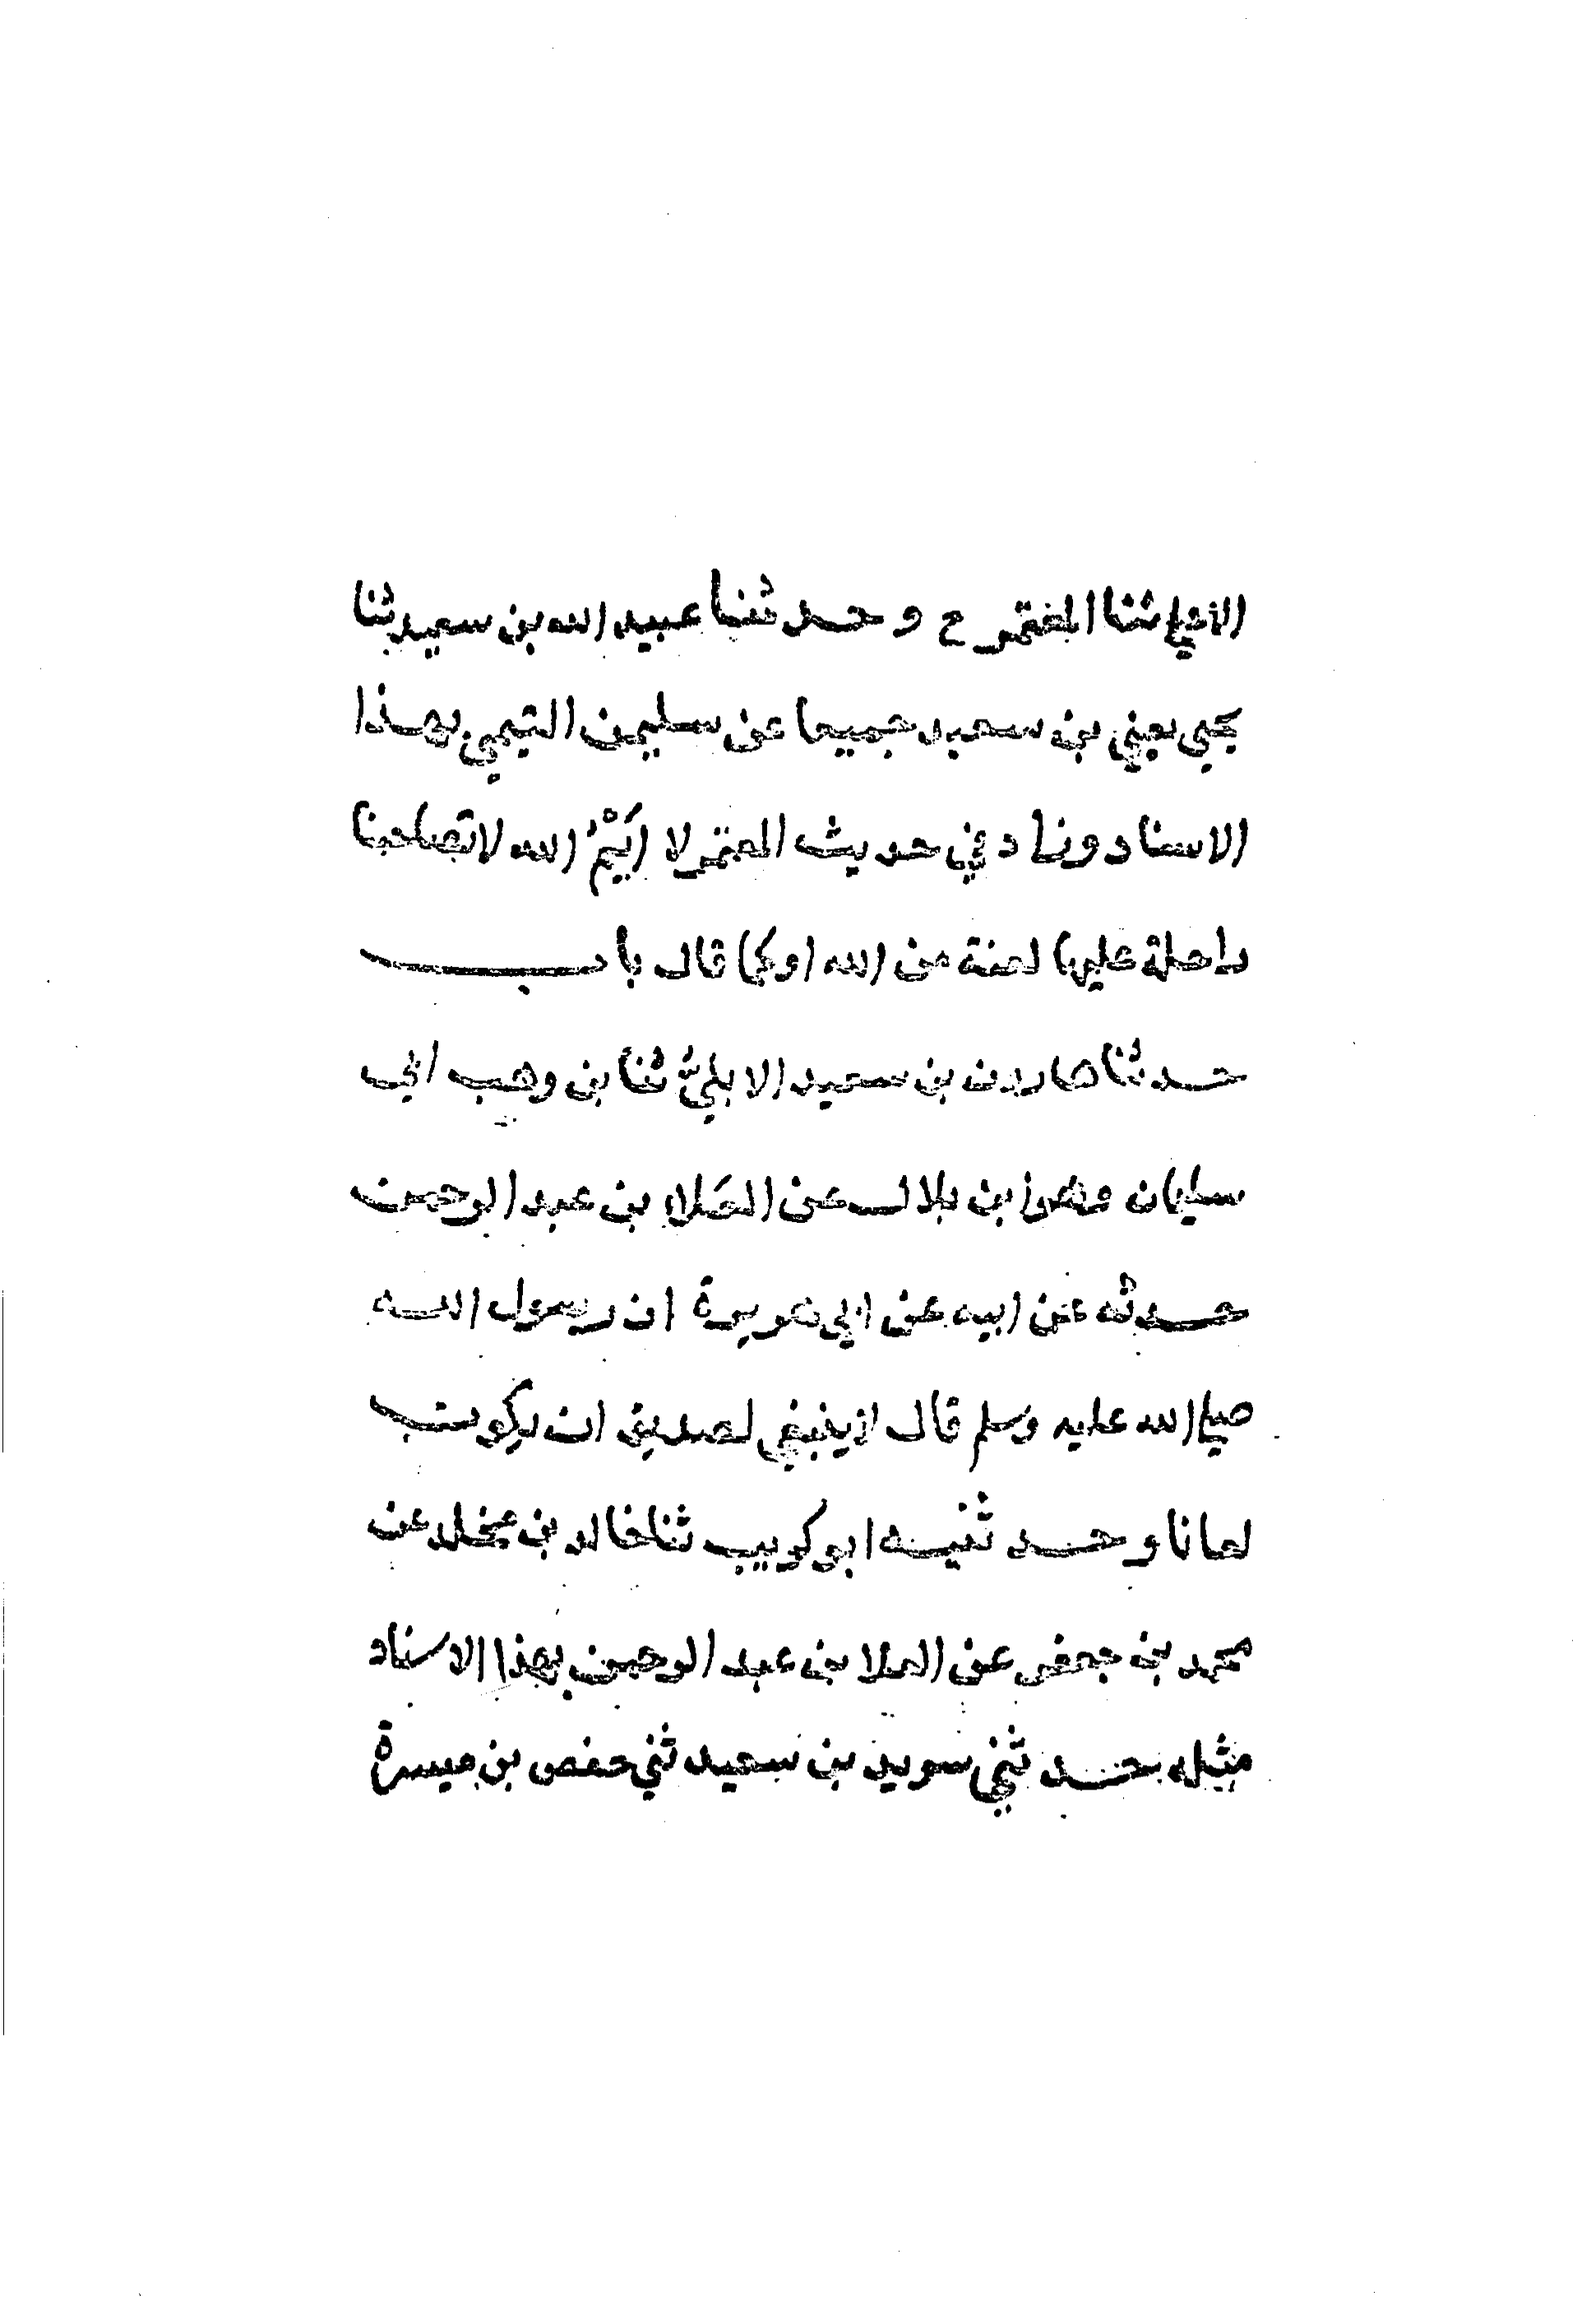 الاعلى ثنا المعتمر ح وحدثنا عبيد الله بن سعيد ثنا
يحيى يعني بن سعيد جميعا عن سليمن التيمي بهذا
الاسناد وزاد في حديث المعتمر لا اَيْمُ الله لا تصاحبنا
راحلة عليها لعنة من الله او كما قال باب
حدثنا هارون بن سعيد الايليُّ ثنا بن وهب اني
سليمان وهو ابن بلال عن العَلاء بن عبد الرحمن
حدثه عن ابيه عن ابي هريرة ان رسول الله
صلى الله عليه وسلم قال لا ينبغي لصديق ان يكون
لعانا وحدثنيه ابو كريب ثنا خالد بن مخلد عن
محمد بن جعفر عن العلا بن عبد الرحمن بهذا الاسناد
مثله حدثني سويد بن سعيد ثني حفص بن ميسرة